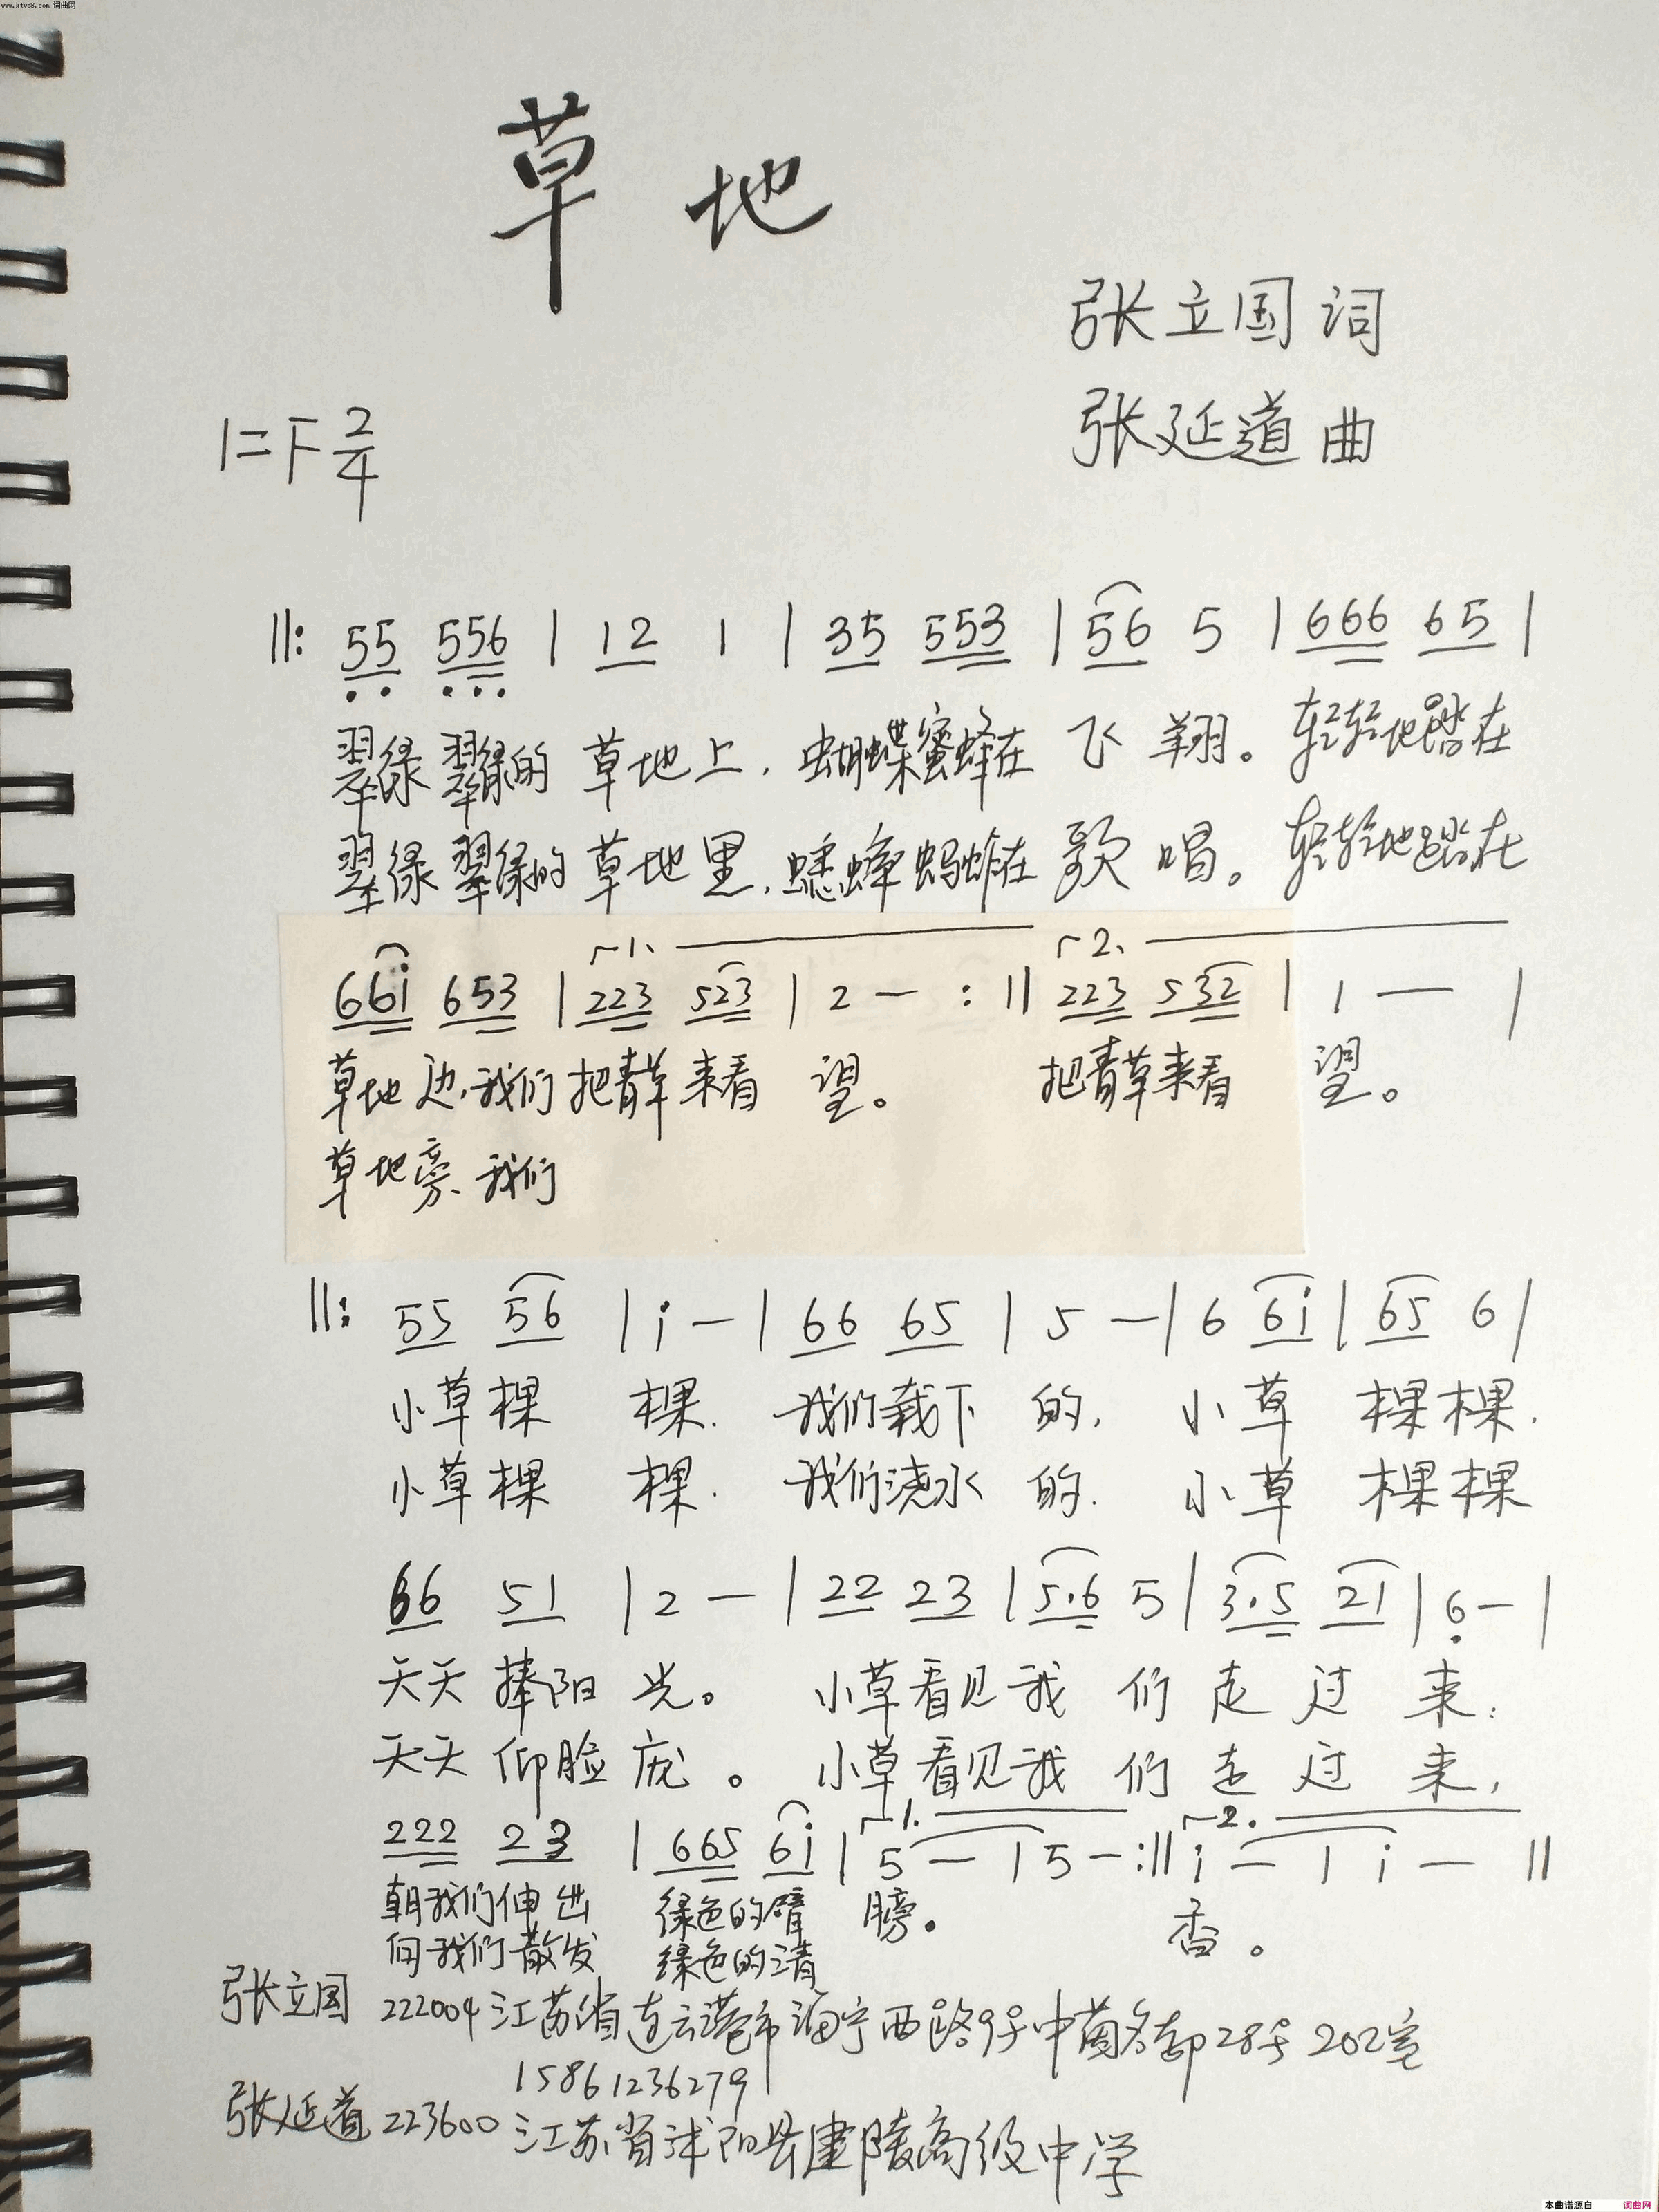 www.ktvc8.com 词曲网
草地
张立国 词
张延道 曲
1=F 2/4
||: 55 556 | 12 1 | 35 553 | 56 5 | 666 65 |
翠绿翠绿的草地上,蝴蝶蜜蜂在飞翔。轻轻地踏在
翠绿翠绿的草地里,蟋蟀蚂蚱在歌唱。轻轻地踏在
1. 2.
66i 653 | 223 523 | 2 — :|| 223 532 | 1 — |
草地边,我们把青草来看望。 把青草来看望。
草地旁、我们
||: 55 56 | i — | 66 65 | 5 — | 6 6i | 65 6 |
小草棵棵. 我们栽下的, 小草棵棵.
小草棵棵. 我们浇水的. 小草棵棵
66 51 | 2 — | 22 23 | 5.6 5 | 3.5 21 | 6 — |
天天捧阳光。 小草看见我们走过来:
天天仰脸庞。 小草看见我们走过来,
1. 2.
222 23 | 665 6i | 5 — | 5 — :|| i — | i — ||
朝我们伸出 绿色的臂膀。 香。
向我们散发 绿色的清
张立国 222004 江苏省连云港市海宁西路9号中茵名都28号202室
15861236279
张延道 223600 江苏省沭阳县建陵高级中学
本曲谱源自 词曲网